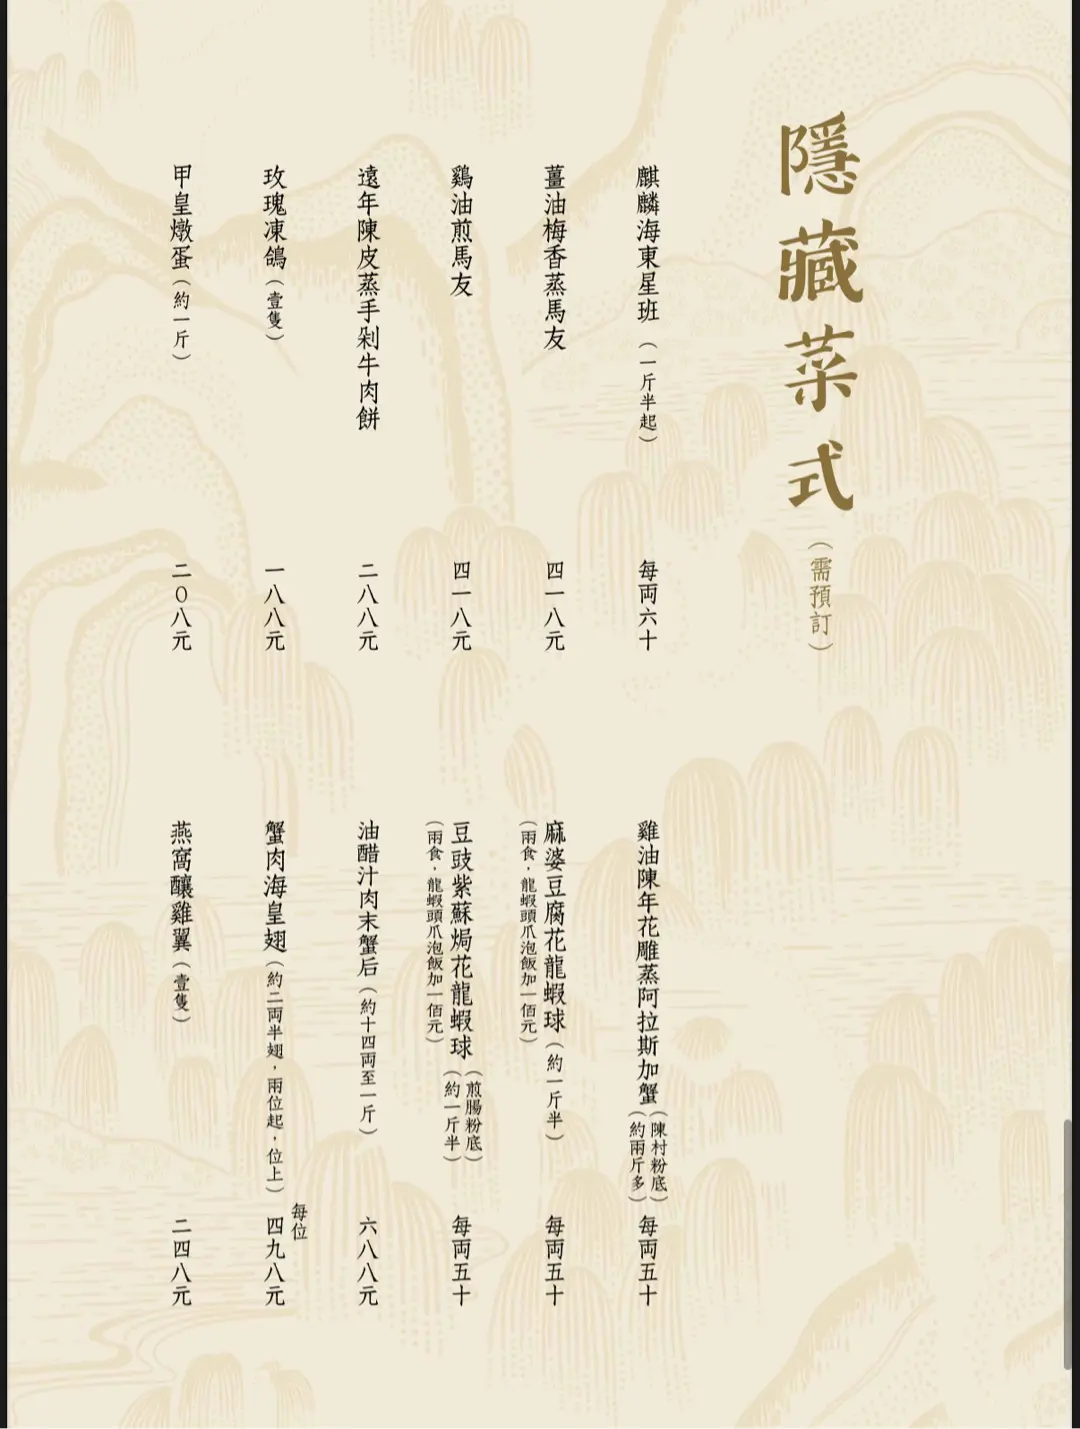 隱藏菜式(需預訂)
麒麟海東星班(一斤半起)
每両六十
薑油梅香蒸馬友
四一八元
鷄油煎馬友
四一八元
遠年陳皮蒸手剁牛肉餅
二八八元
玫瑰凍鴿(壹隻)
一八八元
甲皇燉蛋(約一斤)
二〇八元
雞油陳年花雕蒸阿拉斯加蟹(陳村粉底)(約兩斤多)
每両五十
麻婆豆腐花龍蝦球(約一斤半)
(兩食,龍蝦頭爪泡飯加一佰元)
每両五十
豆豉紫蘇焗花龍蝦球(煎腸粉底)(約一斤半)
(兩食,龍蝦頭爪泡飯加一佰元)
每両五十
油醋汁肉末蟹后(約十四両至一斤)
六八八元
蟹肉海皇翅(約二両半翅,兩位起,位上)
每位
四九八元
燕窩釀雞翼(壹隻)
二四八元